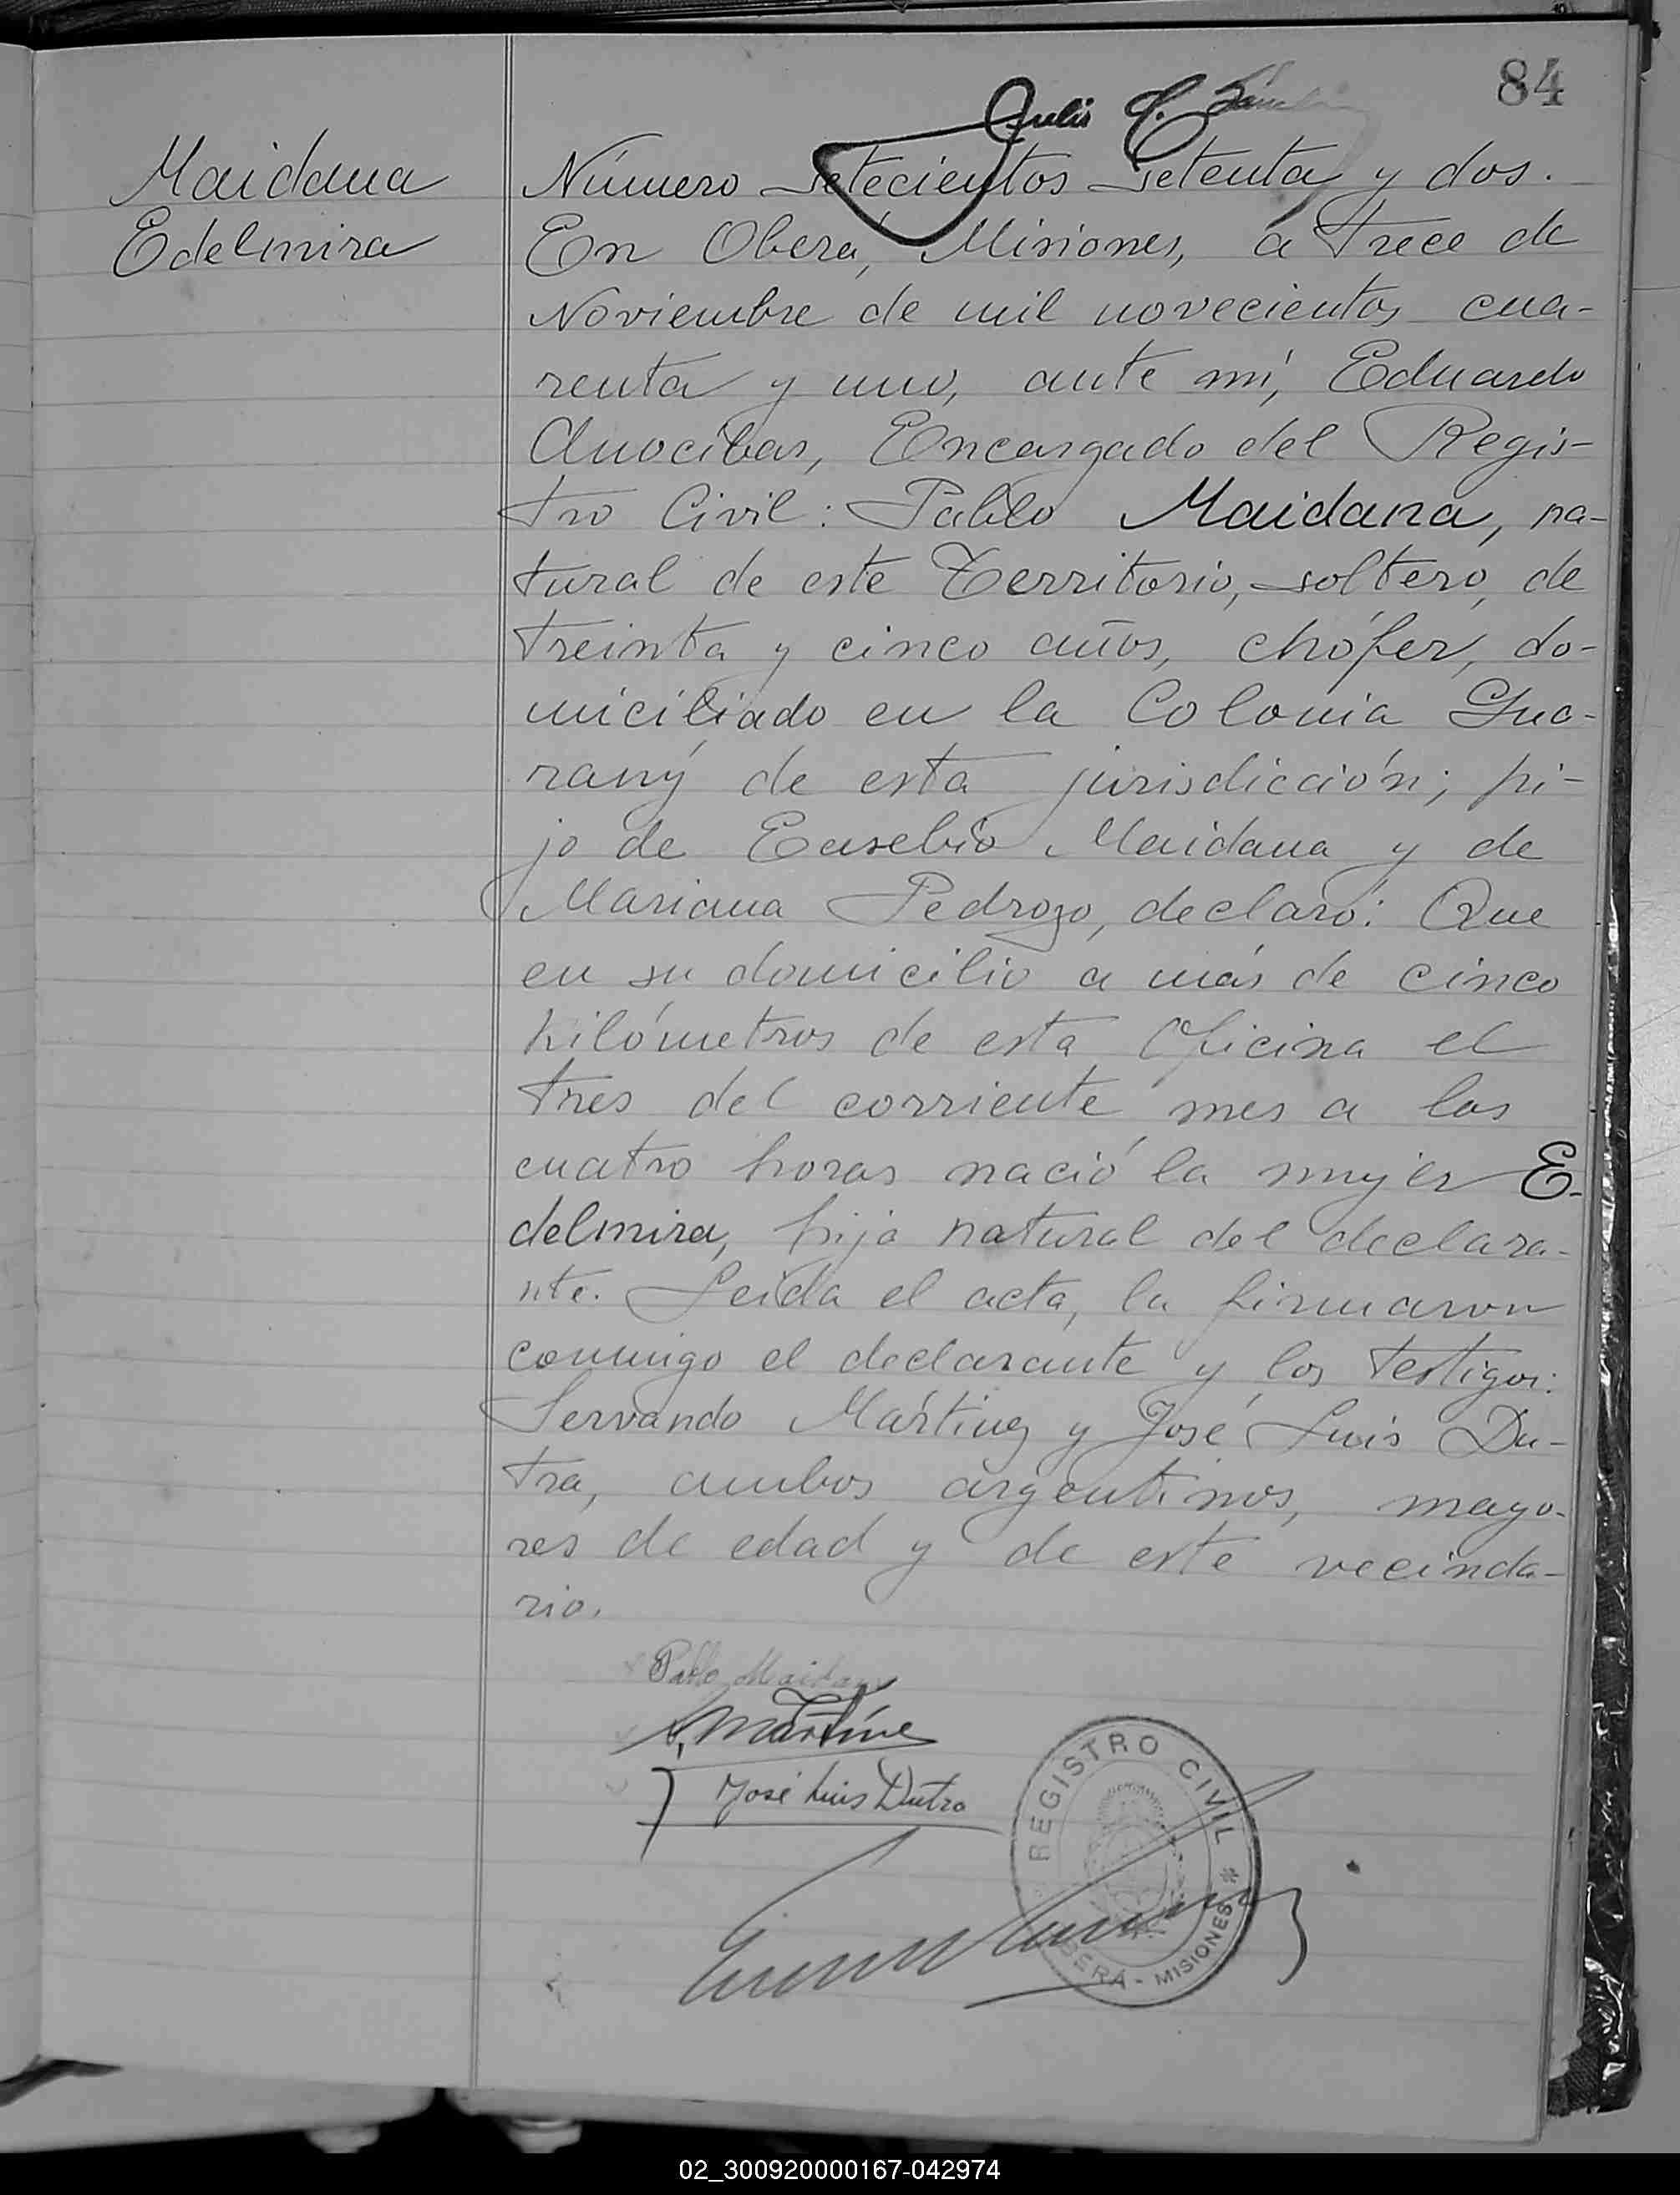 84
Julio C.
Maidana
Edelmira
Número setecientos setenta y dos.
En Oberá, Misiones, a trece de
Noviembre de mil novecientos cua-
renta y uno, ante mí, Eduardo
Anocibar, Encargado del Regis-
tro Civil: Pablo Maidana, na-
tural de este Territorio, soltero, de
treinta y cinco años, chófer, do-
miciliado en la Colonia Gua-
raný de esta jurisdicción; hi-
jo de Eusebio Maidana y de
Mariana Pedrozo, declaró: Que
en su domicilio a más de cinco
kilómetros de esta Oficina el
tres del corriente mes a las
cuatro horas nació la mujer E-
delmira, hija natural del declara-
nte. Leída el acta, la firmaron
conmigo el declarante y los testigos:
Servando Mártinez y José Luis Du-
tra, ambos argentinos, mayo-
res de edad y de este vecinda-
rio.
Pablo Maidana
S. Martíne
José Luis Dutra
REGISTRO CIVIL
OBERÁ - MISIONES
02_300920000167-042974